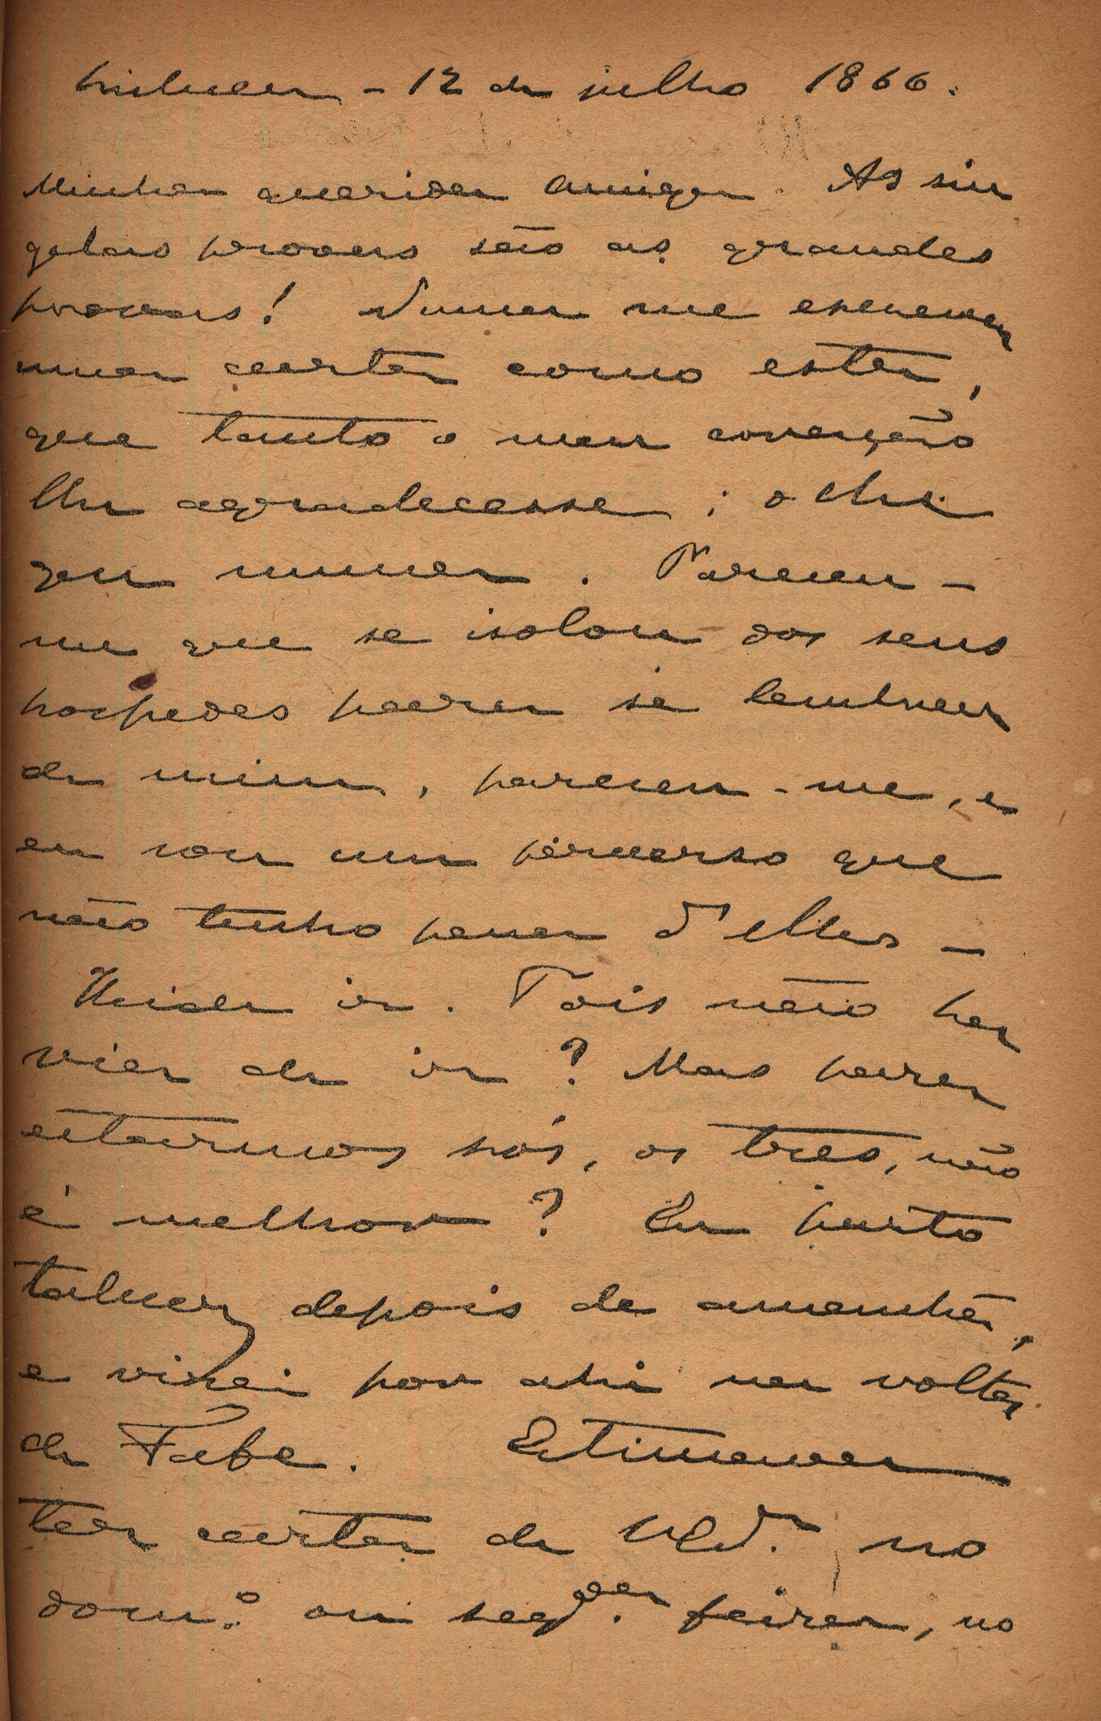 - 12 de julho 1866.
Minha querida amiga. As sin
gelas provas são as grandes
provas! Nunca me escreveu
uma carta como esta,
que tanto o meu coração
lhe agradecesse; o che
gou nunca. Pareceu-
me que se isolou dos seus
hospedes para se lembrar
de mim, pareceu-me, e
eu sou um perverso que
não tenho pena d'elles -
Heide ir. Pois não ha
via de ir? Mas para
estarmos sós, os tres, não
é melhor? Eu parto
talvez depois de amenhã,
e virei por ahi na volta
de Fafe. Estimava
ter carta de V. no
dom.º ou seg.da feira, no